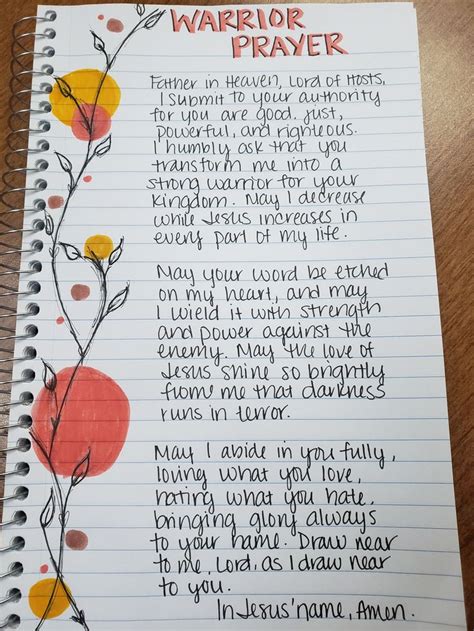 WARRIOR
PRAYER
Father in Heaven, Lord of Hosts,
I submit to your authority
for you are good, just,
powerful, and righteous.
I humbly ask that you
transform me into a
strong warrior for your
Kingdom. May I decrease
while Jesus increases in
every part of my life.
May your word be etched
on my heart, and may
I wield it with strength
and power against the
enemy. May the love of
Jesus shine so brightly
from me that darkness
runs in terror.
May I abide in you fully,
loving what you love,
hating what you hate,
bringing glory always
to your name. Draw near
to me, Lord, as I draw near
to you.
In Jesus' name, Amen.